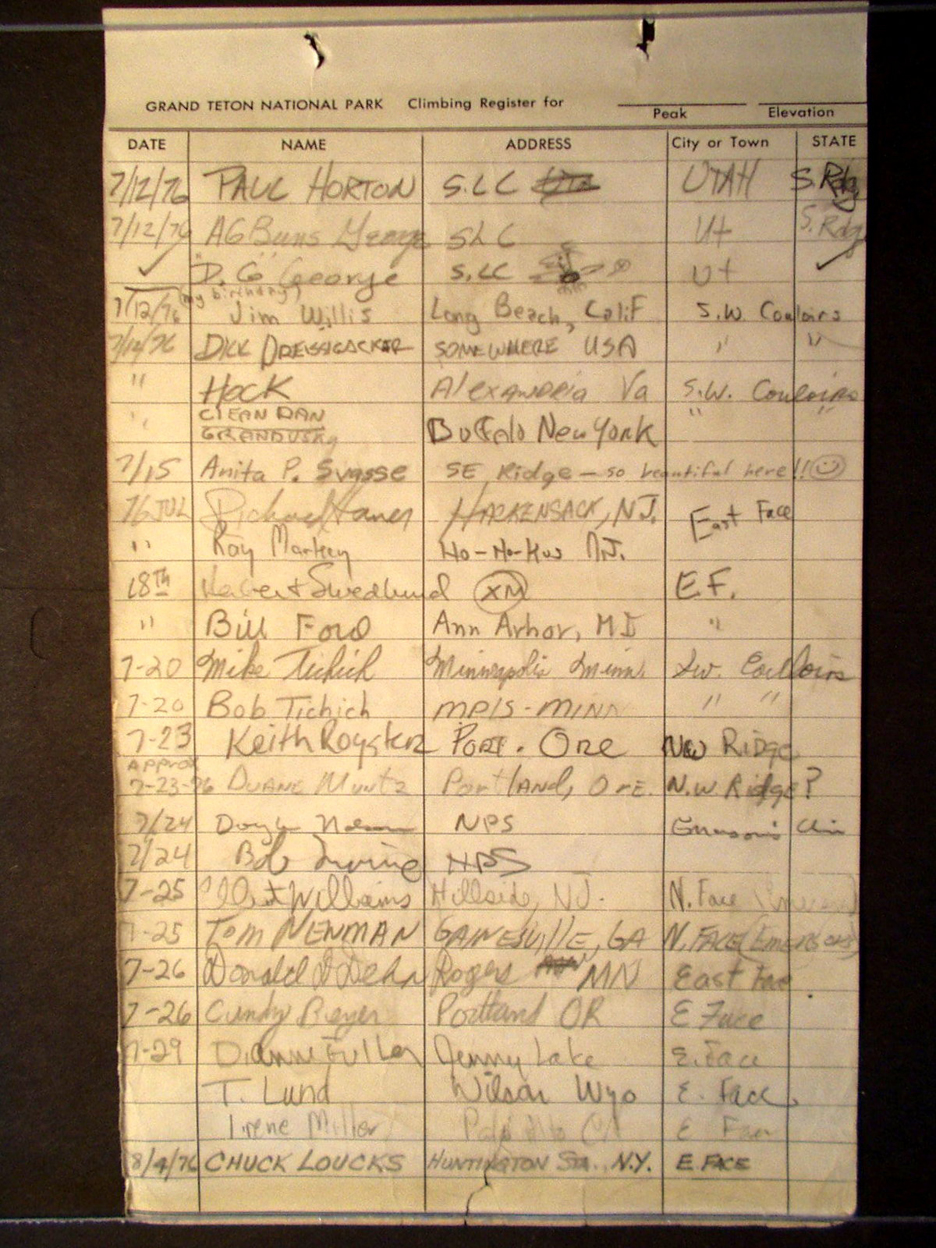 GRAND TETON NATIONAL PARK Climbing Register for
Peak Elevation
DATE NAME ADDRESS City or Town STATE
7/12/76 PAUL HORTON S.LC UTAH S. Rdg
7/12/76 George SLC Ut S. Rdg
"D.G" George S.LC Ut
(my birthday)
7/12/76 Jim Willis Long Beach, Calif S.W. Couloirs
7/12/76 DICK SOMEWHERE USA " "
" HOCK Alexandria Va S.W. Couloirs
" CLEAN DAN Buffalo New York " "
GRANDUSKY
7/15 Anita P. SE Ridge - so beautiful here!! ☺
76 JUL Richard HACKENSACK, NJ. East Face
" Ray Markey Ho-Ho-Kus NJ.
18TH Swedlund XM E.F.
" Bill Ford Ann Arbor, MI "
7-20 Mike Tichich Minneapolis Minn. Sw. Couloirs
7-20 Bob Tichich MPLS-MINN " "
7-23 Keith Royster Port. Ore NW Ridge
APPROX
7-23-76 DUANE MUNTZ Portland, Ore. N.W. Ridge?
7/24 NPS
7/24 Bob Irvine NPS
7-25 Williams Hillside, NJ. N. Face
7-25 TOM NEWMAN GAINESVILLE, GA N. FACE (Emersons)
7-26 Donald Rogers MN East Face
7-26 Cindy Portland OR E Face
7-29 Dianne Fuller Jenny Lake E. Face
T. Lund Wilson Wyo E. Face
Irene Miller Palo Alto CA E Face
8/4/76 CHUCK LOUCKS HUNTINGTON STA., N.Y. E. FACE